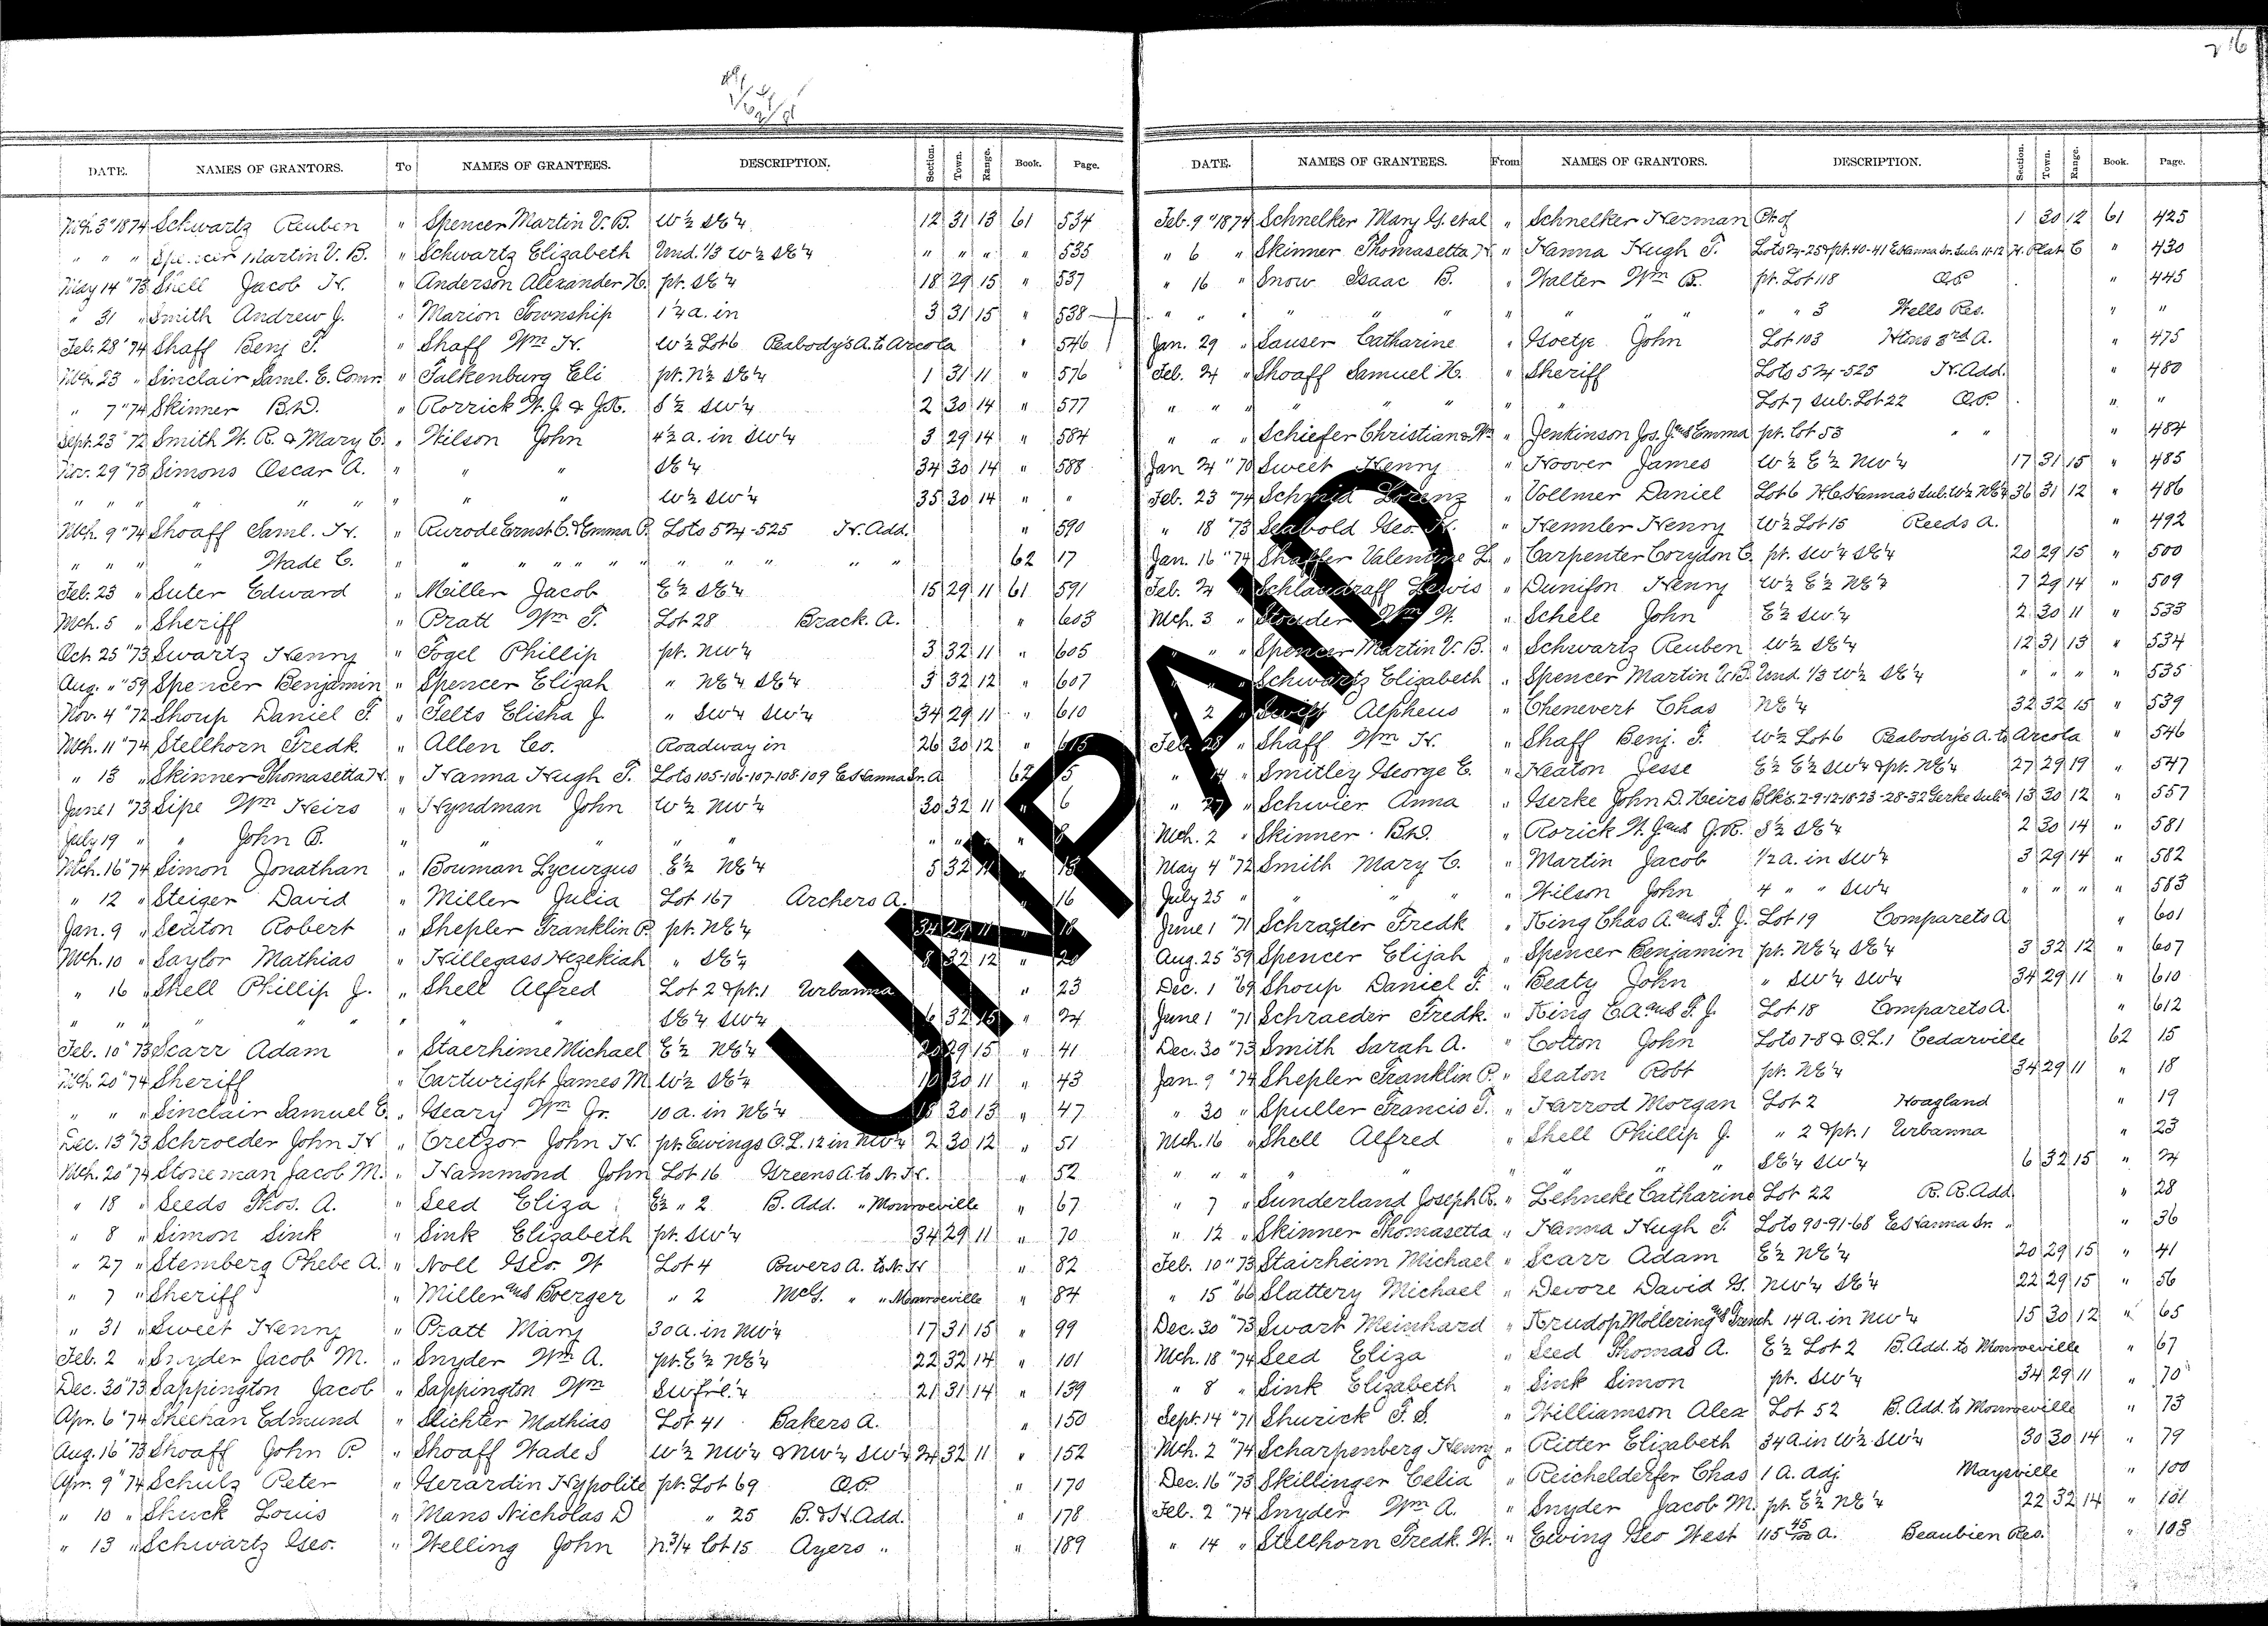 216
DATE. NAMES OF GRANTORS. To NAMES OF GRANTEES. DESCRIPTION. Section. Town. Range. Book. Page.
Mch. 3 " 1874 Schwartz Reuben " Spencer Martin V. B. W½ SE¼ 12 31 13 61 534
" " " Spencer Martin V. B. " Schwartz Elizabeth Und. 1/3 W½ SE¼ " " " " 535
May 14 " 73 Shell Jacob H. " Anderson Alexander H. pt. SE¼ 18 29 15 " 537
" 31 " Smith Andrew J. " Marion Township 1¼ a. in 3 31 15 " 538
Feb. 28 " 74 Shaff Benj. F. " Shaff Wm H. W½ Lot 6 Peabody's A. to Arcola " 546
Mch. 23 " Sinclair Saml. E. Comr. " Falkenburg Eli pt. N½ SE¼ 1 31 11 " 576
" 7 " 74 Skinner B.D. " Rorrick W. J. & J. R. S½ SW¼ 2 30 14 " 577
Sept. 23 " 72 Smith W. R. & Mary C. " Wilson John 4½ a. in SW¼ 3 29 14 " 584
Nov. 29 " 73 Simons Oscar A. " " " SE¼ 34 30 14 " 588
" " " " " " " " " W½ SW¼ 35 30 14 " "
Mch. 9 " 74 Shoaff Saml. H. " Rurode Ernst C. & Emma P. Lots 524-525 H. Add. " 590
" " " " Wade C. " " " " " " " " " " " 62 17
Feb. 23 " Suter Edward " Miller Jacob E½ SE¼ 15 29 11 61 591
Mch. 5 " Sheriff " Pratt Wm T. Lot 28 Brack. A. " 603
Oct. 25 " 73 Swartz Henry " Fogel Phillip pt. NW¼ 3 32 11 " 605
Aug. " " 59 Spencer Benjamin " Spencer Elizah " NE¼ SE¼ 3 32 12 " 607
Nov. 4 " 72 Shoup Daniel F. " Felts Elisha J. " SW¼ SW¼ 34 29 11 " 610
Mch. 11 " 74 Stellhorn Fredk " Allen Co. Roadway in 26 30 12 " 615
" 13 " Skinner Thomasetta H. " Hanna Hugh T. Lots 105-106-107-108-109 E. Hanna Sr. A 62 5
June 1 " 73 Sipe Wm Heirs " Hyndman John W½ NW¼ 30 32 11 " 6
July 19 " " John B. " " " " " " " "
Mch. 16 " 74 Simon Jonathan " Bouman Lycurgus E½ NE¼ 5 32 11 " 15
" 12 " Steiger David " Miller Julia Lot 167 Archers A. " 16
Jan. 9 " Seaton Robert " Shepler Franklin P. pt. NE¼ 34 29 11 " 18
Mch. 10 " Saylor Mathias " Hillegass Hezekiah " SE¼ 8 32 12 " 20
" 16 " Shell Phillip J. " Shell Alfred Lot 2 & pt. 1 Urbanna " 23
" " " " " " " " SE¼ SW¼ 6 32 15 " 24
Feb. 10 " 73 Scarr Adam " Staerhime Michael E½ NE¼ 20 29 15 " 41
Mch. 20 " 74 Sheriff " Cartwright James M. W½ SE¼ 10 30 11 " 43
" " " Sinclair Samuel E. " Geary Wm Jr. 10 a. in NE¼ 18 30 13 " 47
Dec. 13 " 73 Schroeder John H " Cretzor John H. pt. Ewings O.L. 12 in NW¼ 2 30 12 " 51
Mch. 20 " 74 Stoneman Jacob M. " Hammond John Lot 16 Greens A. to N. H. " 52
" 18 " Seeds Thos. A. " Seed Eliza E½ " 2 B. Add. " Monroeville " 67
" 8 " Simon Sink " Sink Elizabeth pt. SW¼ 34 29 11 " 70
" 27 " Stemberg Phebe A. " Noll Geo. W Lot 4 Bowers A. to N. H " 82
" 7 " Sheriff " Miller and Boerger " 2 McG. " " Monroeville " 84
" 31 " Sweet Henry " Pratt Mary 30 a. in NW¼ 17 31 15 " 99
Feb. 2 " Snyder Jacob M. " Snyder Wm A. pt. E½ NE¼ 22 32 14 " 101
Dec. 30 " 73 Sappington Jacob " Sappington Wm SW fr'l. ¼ 21 31 14 " 139
Apr. 6 " 74 Sheehan Edmund " Slichter Mathias Lot 41 Bakers A. " 150
Aug. 16 " 73 Shoaff John P. " Shoaff Wade S W½ NW¼ & NW¼ SW¼ 24 32 11 " 152
Apr. 9 " 74 Schulz Peter " Gerardin Hypolite pt. Lot 69 O.P. " 170
" 10 " Shuck Louis " Mans Nicholas D " 25 B. & H. Add. " 178
" 13 " Schwartz Geo. " Welling John N. 3/4 Lot 15 Ayers " " 189
DATE. NAMES OF GRANTEES. From NAMES OF GRANTORS. DESCRIPTION. Section. Town. Range. Book. Page.
Feb. 9 " 1874 Schnelker Mary G. et al " Schnelker Herman Pt. of 1 30 12 61 425
" 6 " Skinner Thomasetta H. " Hanna Hugh T. Lots 24-25 & pt. 40-41 E. Hanna Sr. Sub. 11-12 H. Plat C " 430
" 16 " Snow Isaac B. " Walter Wm B. pt. Lot 118 O.P. " 445
" " " " " " " " " " " 3 Wells Res. " "
Jan. 29 " Sauser Catharine " Goetje John Lot 103 Htons 3rd A. " 475
Feb. 24 " Shoaff Samuel H. " Sheriff Lots 524-525 H. Add. " 480
" " " " " " " Lot 7 Sub. Lot 22 O.P. " "
" " " Schiefer Christian & Wm " Jenkinson Jos. J. and Emma pt. Lot 53 " " " 484
Jan 24 " 70 Sweet Henry " Hoover James W½ E½ NW¼ 17 31 15 " 485
Feb. 23 " 74 Schmid Lorenz " Vollmer Daniel Lot 6 H. C. Hanna's Sub. W½ NE¼ 36 31 12 " 486
" 18 " 73 Seabold Geo. H. " Hennler Henry W½ Lot 15 Reeds A. " 492
Jan. 16 " 74 Shaffer Valentine L. " Carpenter Corydon C. pt. SW¼ SE¼ 20 29 15 " 500
Feb. 24 " Schlaudraff Lewis " Dunifon Henry W½ E½ NE¼ 7 29 14 " 509
Mch. 3 " Stouder Wm W. " Schele John E½ SW¼ 2 30 11 " 533
" " Spencer Martin V. B. " Schwartz Reuben W½ SE¼ 12 31 13 " 534
" " Schwartz Elizabeth " Spencer Martin V. B. Und. 1/3 W½ SE¼ " " " " 535
" 2 " Swift Alpheus " Chenevert Chas NE¼ 32 32 15 " 539
Feb. 28 " Shaff Wm H. " Shaff Benj. F. W½ Lot 6 Peabody's A. to Arcola " 546
" 14 " Smitley George E. " Heaton Jesse E½ E½ SW¼ & pt. NE¼ 27 29 19 " 547
" 27 " Schwier Anna " Gerke John D. Heirs Blks. 2-9-12-18-23-28-32 Gerke Sub. 13 30 12 " 557
Mch. 2 " Skinner B.D. " Rorick W. J. and J. R. S½ SE¼ 2 30 14 " 581
May 4 " 72 Smith Mary C. " Martin Jacob 1/2 a. in SW¼ 3 29 14 " 582
July 25 " " " " Wilson John 4 " " SW¼ " " " " 583
June 1 " 71 Schrader Fredk " King Chas A. and F. J. Lot 19 Comparets A " 601
Aug. 25 " 59 Spencer Elijah " Spencer Benjamin pt. NE¼ SE¼ 3 32 12 " 607
Dec. 1 " 69 Shoup Daniel F. " Beaty John " SW¼ SW¼ 34 29 11 " 610
June 1 " 71 Schraeder Fredk. " King C. A. and F. J. Lot 18 Comparets A. " 612
Dec. 30 " 73 Smith Sarah A. " Cotton John Lots 7-8 & O.L. 1 Cedarville 62 15
Jan. 9 " 74 Shepler Franklin P. " Seaton Robt pt. NE¼ 34 29 11 " 18
" 30 " Spuller Francis J. " Harrod Morgan Lot 2 Hoagland " 19
Mch. 16 " Shell Alfred " Shell Phillip J. " 2 & pt. 1 Urbanna " 23
" " " " " " " SE¼ SW¼ 6 32 15 " 24
" 7 " Sunderland Joseph R. " Lehneke Catharine Lot 22 R. R. Add. " 28
" 12 " Skinner Thomasetta " Hanna Hugh T. Lots 90-91-68 E. Hanna Sr. " " 36
Feb. 10 " 73 Stairheim Michael " Scarr Adam E½ NE¼ 20 29 15 " 41
" 15 " 66 Slattery Michael " Devore David G. NW¼ SE¼ 22 29 15 " 56
Dec. 30 " 73 Swart Meinhard " Krudop Mollering and French 14 a. in NW¼ 15 30 12 " 65
Mch. 18 " 74 Seed Eliza " Seed Thomas A. E½ Lot 2 B. Add. to Monroeville " 67
" 8 " Sink Elizabeth " Sink Simon pt. SW¼ 34 29 11 " 70
Sept. 14 " 71 Shurick F. S. " Williamson Alex Lot 52 B. Add. to Monroeville " 73
Mch. 2 " 74 Scharpenberg Henry " Ritter Elizabeth 34 a. in W½ SW¼ 30 30 14 " 79
Dec. 16 " 73 Skillinger Celia " Reichelderfer Chas 1 a. adj. Maysville " 100
Feb. 2 " 74 Snyder Wm A. " Snyder Jacob M. pt. E½ NE¼ 22 32 14 " 101
" 14 " Stellhorn Fredk. W. " Ewing Geo West 115 45/100 a. Beaubien Res. " 103
UNPAID